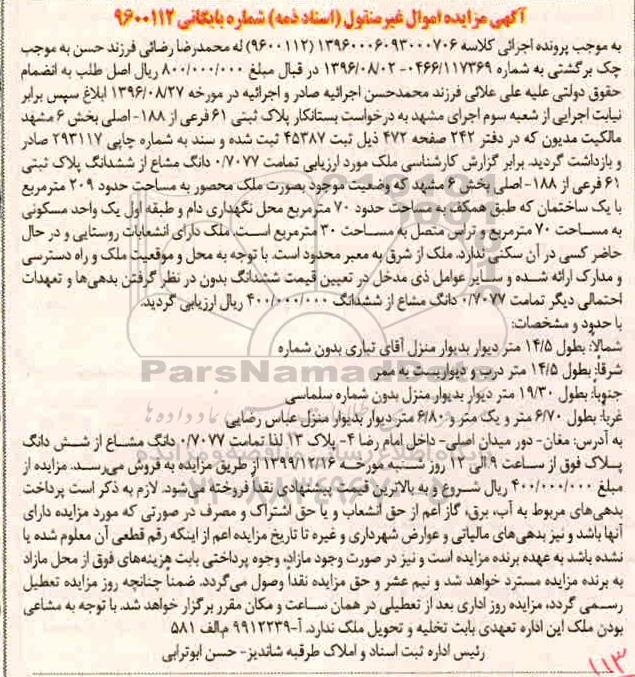 آگهی مزایده اموال غیرمنقول (اسناد ذمه) شماره بایگانی ۹۶۰۰۱۱۲
به موجب پرونده اجرائی کلاسه ۱۳۹۶۰۰۰۶۰۹۳۰۰۰۷۰۶ (۹۶۰۰۱۱۲) له محمدرضا رضائی فرزند حسن به موجب
چک برگشتی به شماره ۰۴۶۶/۱۱۷۳۶۹- ۱۳۹۶/۰۸/۰۲ در قبال مبلغ ۸۰۰/۰۰۰/۰۰۰ ریال اصل طلب به انضمام
حقوق دولتی علیه علی علائی فرزند محمدحسن اجرائیه صادر و اجرائیه در مورخه ۱۳۹۶/۰۸/۲۷ ابلاغ سپس برابر
نیابت اجرایی از شعبه سوم اجرای مشهد به درخواست بستانکار پلاک ثبتی ۶۱ فرعی از ۱۸۸- اصلی بخش ۶ مشهد
مالکیت مدیون که در دفتر ۲۴۲ صفحه ۴۷۲ ذیل ثبت ۴۵۳۸۷ ثبت شده و سند به شماره چاپی ۲۹۳۱۱۷ صادر
و بازداشت گردید. برابر گزارش کارشناسی ملک مورد ارزیابی تمامت ۰/۷۰۷۷ دانگ مشاع از ششدانگ پلاک ثبتی
۶۱ فرعی از ۱۸۸- اصلی بخش ۶ مشهد که وضعیت موجود بصورت ملک محصور به مساحت حدود ۲۰۹ مترمربع
با یک ساختمان که طبق همکف به مساحت حدود ۷۰ مترمربع محل نگهداری دام و طبقه اول یک واحد مسکونی
به مساحت ۷۰ مترمربع و تراس متصل به مساحت ۳۰ مترمربع است. ملک دارای انشعابات روستایی و در حال
حاضر کسی در آن سکنی ندارد. ملک از شرق به معبر محدود است. با توجه به محل و موقعیت ملک و راه دسترسی
و مدارک ارائه شده و سایر عوامل ذی مدخل در تعیین قیمت ششدانگ بدون در نظر گرفتن بدهی‌ها و تعهدات
احتمالی دیگر تمامت ۰/۷۰۷۷ دانگ مشاع از ششدانگ ۴۰۰/۰۰۰/۰۰۰ ریال ارزیابی گردید.
با حدود و مشخصات:
شمالاً: بطول ۱۴/۵ متر دیوار بدیوار منزل آقای تباری بدون شماره
شرقاً: بطول ۱۴/۵ متر درب و دیواریست به ممر
جنوباً: بطول ۱۹/۳۰ متر دیوار بدیوار منزل بدون شماره سلماسی
غربا: بطول ۶/۷۰ متر و یک متر و ۶/۸۰ متر دیوار بدیوار منزل عباس رضایی
به آدرس: مغان- دور میدان اصلی- داخل امام رضا ۴- پلاک ۱۳ لذا تمامت ۰/۷۰۷۷ دانگ مشاع از شش دانگ
پلاک فوق از ساعت ۹ الی ۱۲ روز شنبه مورخه ۱۳۹۹/۱۲/۱۶ از طریق مزایده به فروش می‌رسد. مزایده از
مبلغ ۴۰۰/۰۰۰/۰۰۰ ریال شروع و به بالاترین قیمت پیشنهادی نقداً فروخته می‌شود. لازم به ذکر است پرداخت
بدهی‌های مربوط به آب، برق، گاز اعم از حق انشعاب و یا حق اشتراک و مصرف در صورتی که مورد مزایده دارای
آنها باشد و نیز بدهی‌های مالیاتی و عوارض شهرداری و غیره تا تاریخ مزایده اعم از اینکه رقم قطعی آن معلوم شده یا
نشده باشد به عهده برنده مزایده است و نیز در صورت وجود مازاد، وجوه پرداختی بابت هزینه‌های فوق از محل مازاد
به برنده مزایده مسترد خواهد شد و نیم عشر و حق مزایده نقداً وصول می‌گردد. ضمناً چنانچه روز مزایده تعطیل
رسمی گردد، مزایده روز اداری بعد از تعطیلی در همان ساعت و مکان مقرر برگزار خواهد شد. با توجه به مشاعی
بودن ملک این اداره تعهدی بابت تخلیه و تحویل ملک ندارد. آ-۹۹۱۲۲۳۹ م.الف ۵۸۱
رئیس اداره ثبت اسناد و املاک طرقبه شاندیز- حسن ابوترابی
۱۱۳
ParsNamadData